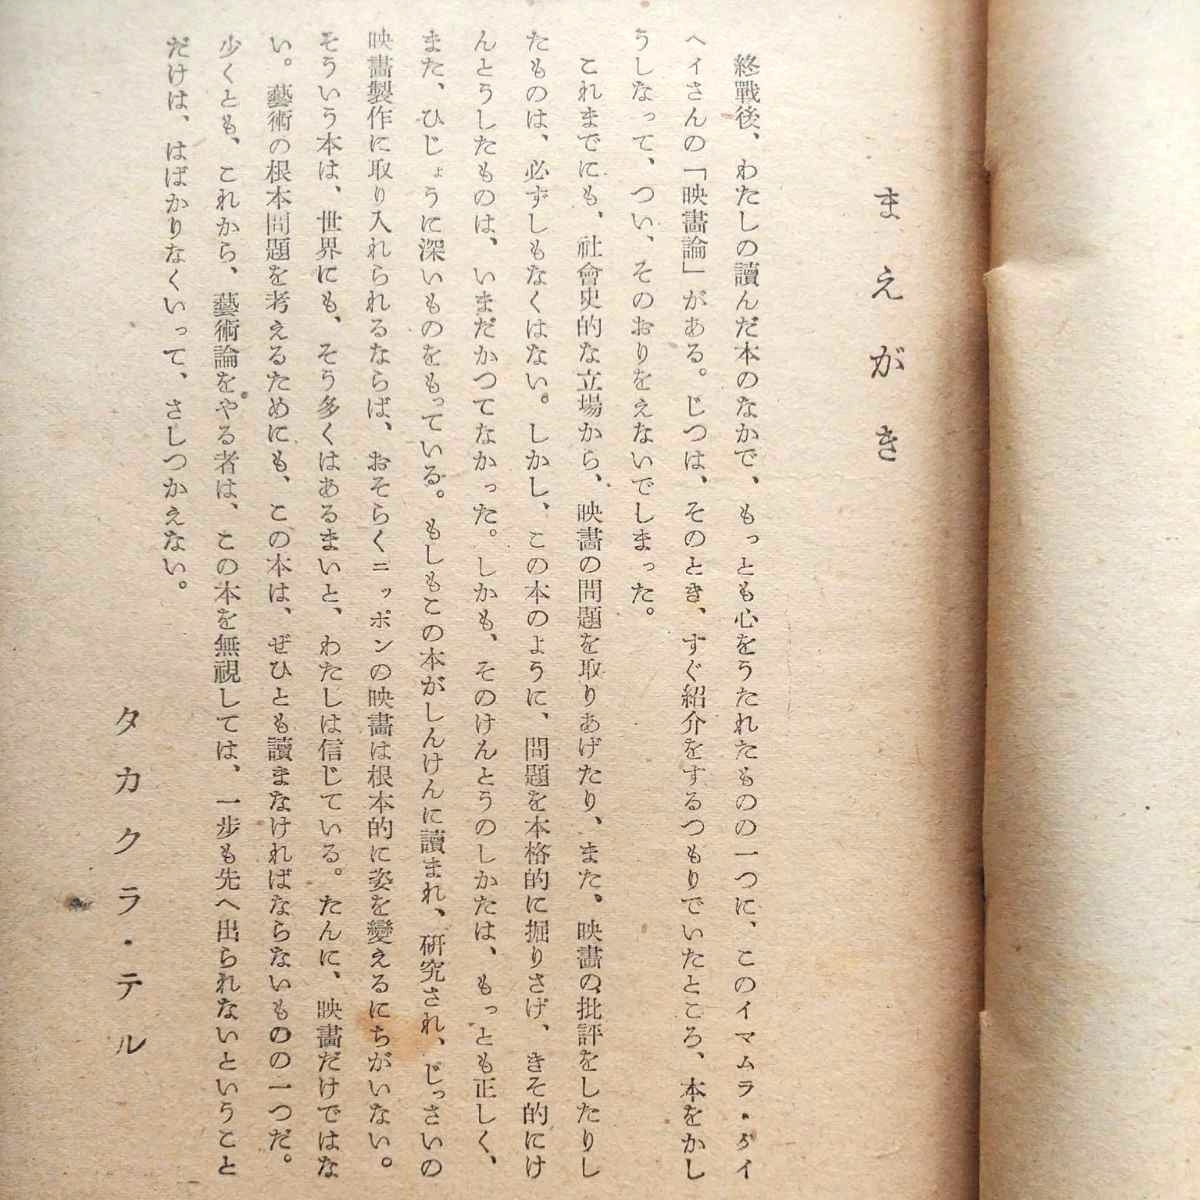 まえがき
終戰後、わたしの讀んだ本のなかで、もっとも心をうたれたものの一つに、このイマムラ・タイ
ヘイさんの「映畫論」がある。じつは、そのとき、すぐ紹介をするつもりでいたところ、本をかし
うしなって、つい、そのおりをえないでしまった。
これまでにも、社會史的な立場から、映畫の問題を取りあげたり、また、映畫の批評をしたりし
たものは、必ずしもなくはない。しかし、この本のように、問題を本格的に掘りさげ、きそ的にけ
んとうしたものは、いまだかつてなかった。しかも、そのけんとうのしかたは、もっとも正しく、
また、ひじょうに深いものをもっている。もしもこの本がしんけんに讀まれ、研究され、じっさいの
映畫製作に取り入れられるならば、おそらくニッポンの映畫は根本的に姿を變えるにちがいない。
そういう本は、世界にも、そう多くはあるまいと、わたしは信じている。たんに、映畫だけではな
い。藝術の根本問題を考えるためにも、この本は、ぜひとも讀まなければならないものの一つだ。
少くとも、これから、藝術論をやる者は、この本を無視しては、一歩も先へ出られないということ
だけは、はばかりなくいって、さしつかえない。
タカクラ・テル